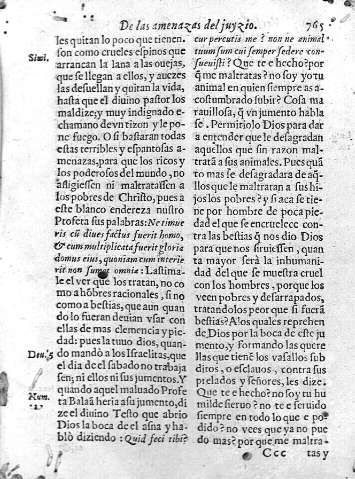 De las amenazas del juyzio. 765
les quitan lo poco que tienen.
son como crueles espinos que
Simi.
arrancan la lana a las ouejas,
que se llegan a ellos, y auezes
las desuellan y quitan la vida,
hasta que el diuino pastor los
maldize; y muy indignado e-
chamano de vn tizon y le po-
ne fuego. O si bastaran todas
estas terribles y espantosas a-
menazas, para que los ricos y
los poderosos del mundo, no
afligiessen ni maltratassen a
los pobres de Christo, pues a
este blanco endereza nuestro
Profeta sus palabras: Ne timue
ris cũ diues factus fuerit homo,
& cum multiplicata fuerit gloria
domus eius, quoniam cum interie
rit non sumet omnia: Lastima-
le el ver que los tratan, no co
mo a hõbres racionales, si no
como a bestias, que aun quan
do lo fueran deuian vsar con
ellas de mas clemencia y pie-
dad: pues la tuuo dios, quan-
Deu. 5
do mandò a los Israelitas, que
el dia de el sabado no trabaja
sen, ni ellos ni sus jumentos. Y
quando aquel maluado Profe
Num.
ta Balaã heria a su jumento, di
22.
ze el diuino Testo que abrio
Dios la boca de el asna y ha-
blò diziendo: Quid feci tibi?
cur percutis me? nonne animal
tuum sum cui semper sedere con-
sueuisti? Que te e hecho? por
q̃ me maltratas? no soy yo tu
animal en quien siempre as a-
costumbrado subir? Cosa ma
rauillosa, q̃ vn jumento habla
se. Permitiolo Dios para dar
a entender que le desagradan
aquellos que sin razon mal-
tratã a sus animales. Pues quã
to mas se desagradara de aq̃-
llos que le maltratan a sus hi-
jos los pobres? y si aca se tie-
ne por hombre de poca pie-
dad el que se encruelece con-
tra las bestias q̃ nos dio Dios
para que nos siruiessen, quan
ta mayor serà la inhumani-
dad del que se muestra cruel
con los hombres, porque los
veen pobres y desarrapados,
tratandolos peor que si fuerã
bestias? A los quales reprehen
de Dios por la boca de este ju
mento, y formando las quere
llas que tienẽ los vasallos sub
ditos, o esclauos, contra sus
prelados y señores, les dize.
Que te e hecho? no soy tu hu
milde sieruo? no te e seruido
siempre en todo lo que e po-
dido? no vees que ya no pue
do mas? por que me maltra-
Ccc tas y